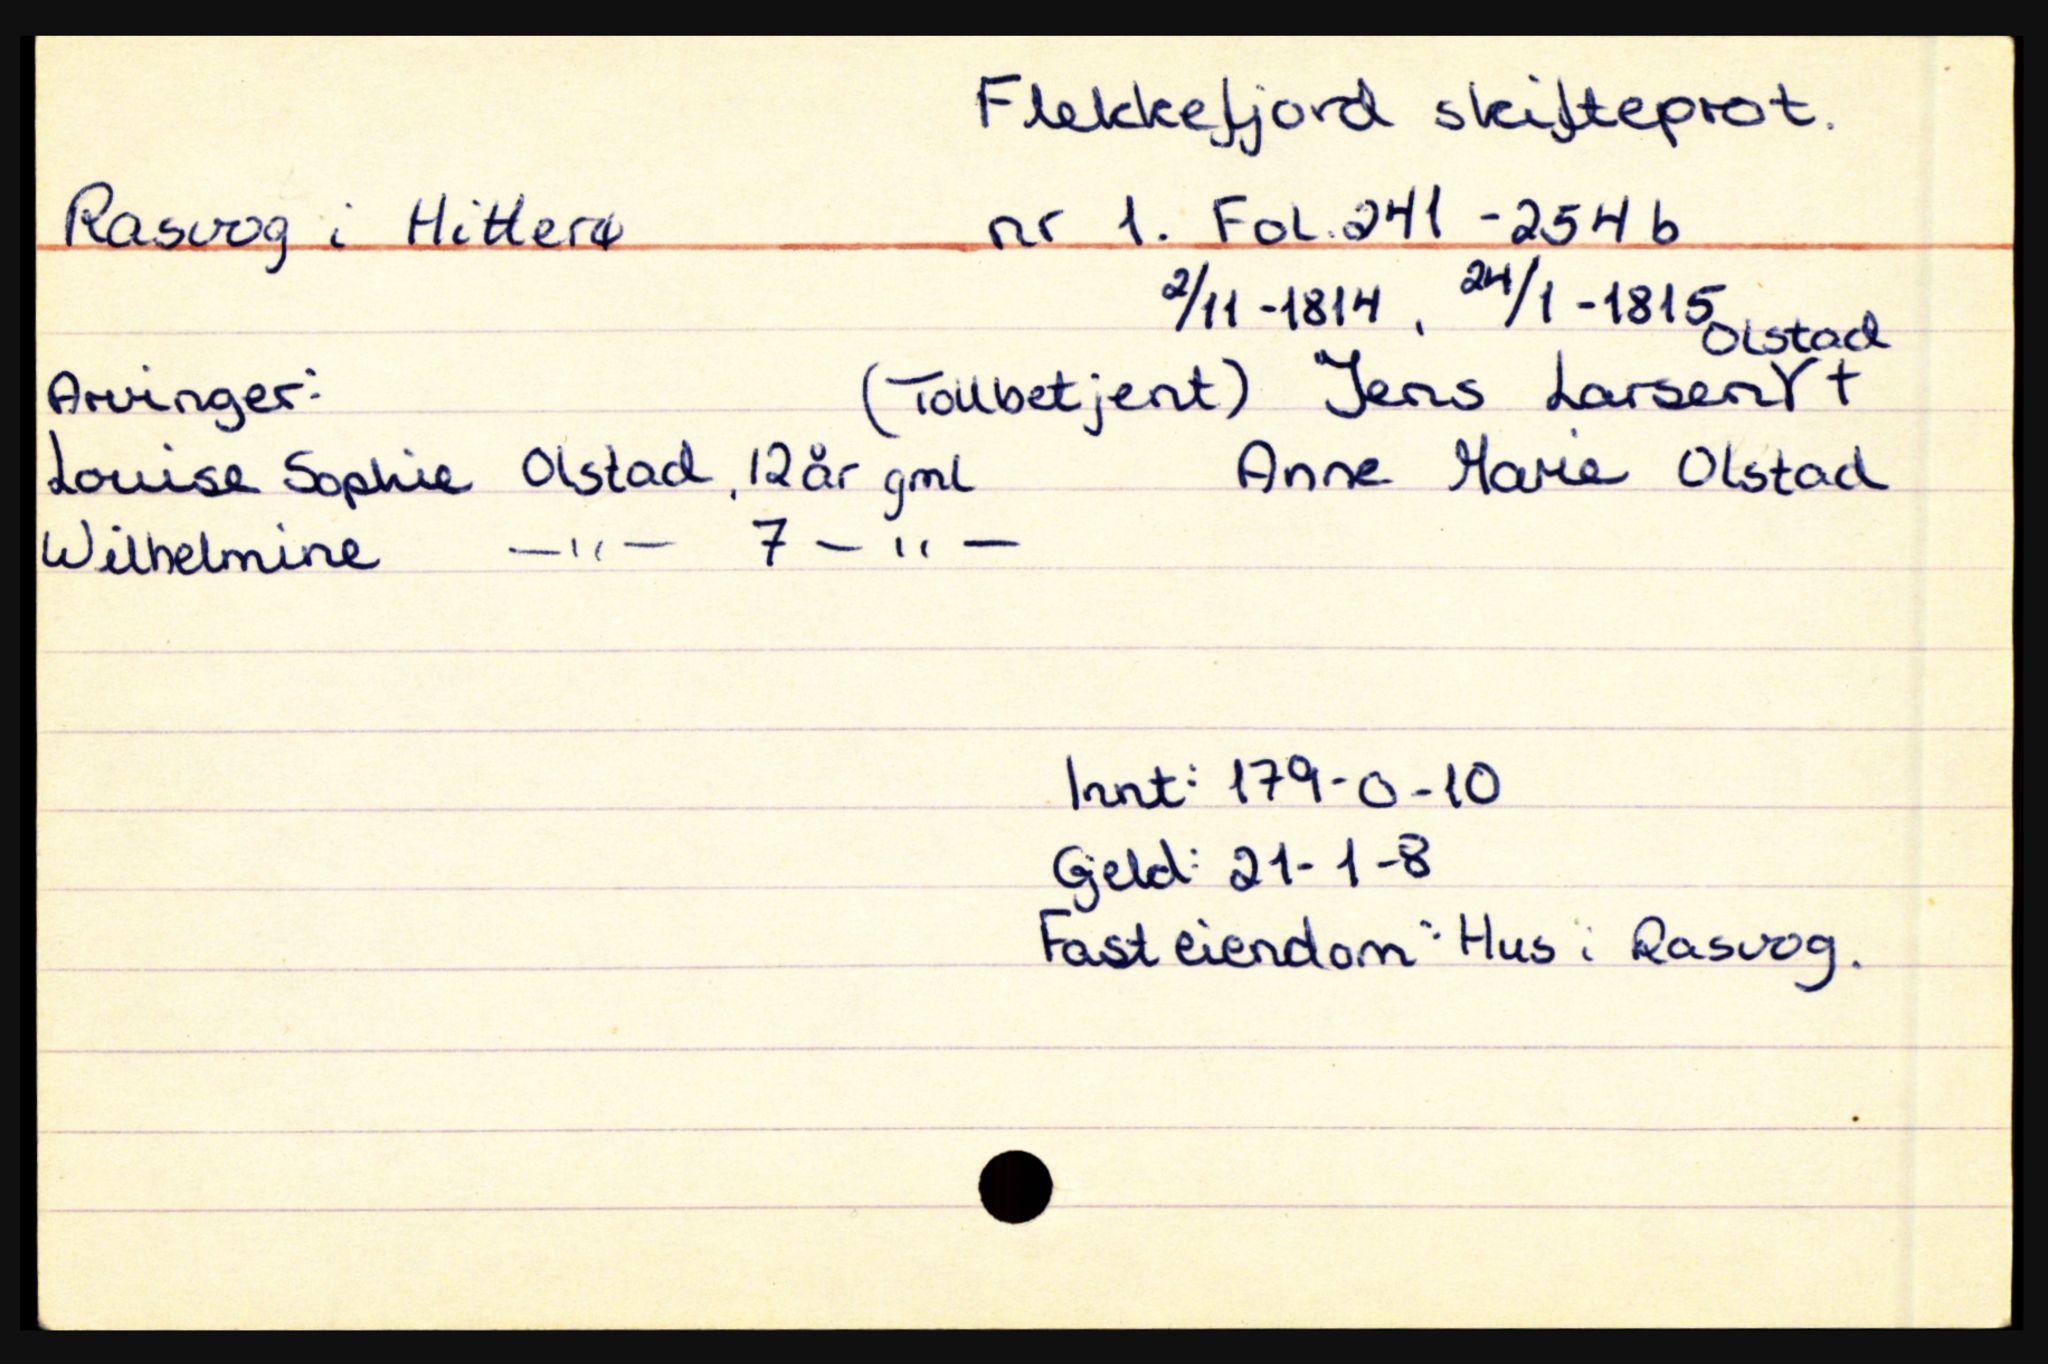 Flekkefjord skifteprot.
Rasvog i Hitterø nr 1. Fol. 241 - 254 b
2/11 - 1814, 24/1 - 1815
Olstad
Arvinger: (Tollbetjent) Jens Larsen †
Louise Sophie Olstad, 12 år gml Anne Marie Olstad
Wilhelmine —"— 7 —"—
Innt: 179-0-10
Gjeld: 21-1-8
Fast eiendom: Hus i Rasvog.